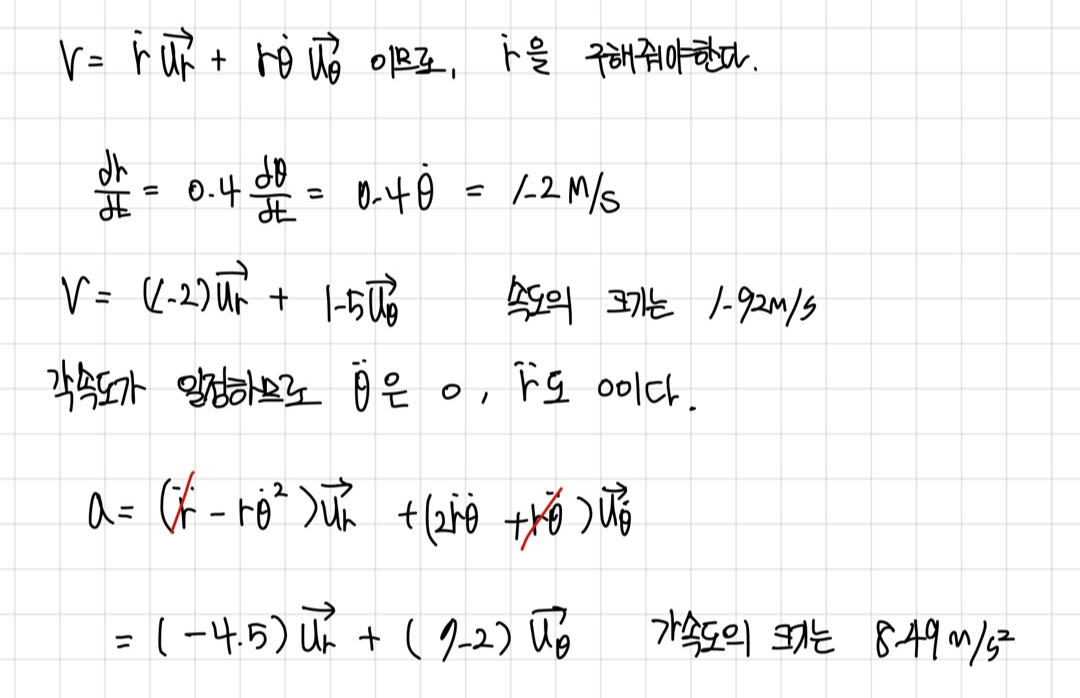 V = ṙ u⃗r + rθ̇ u⃗θ 이므로, ṙ을 구해줘야한다.
dr/dt = 0.4 dθ/dt = 0.4θ̇ = 1.2 m/s
V = (1.2)u⃗r + 1.5u⃗θ 속도의 크기는 1.92m/s
각속도가 일정하므로 θ̈은 0, r̈도 0이다.
a = (r̈ - rθ̇²)u⃗r + (2ṙθ̇ + rθ̈)u⃗θ
= (-4.5)u⃗r + (7.2)u⃗θ 가속도의 크기는 8.49 m/s²